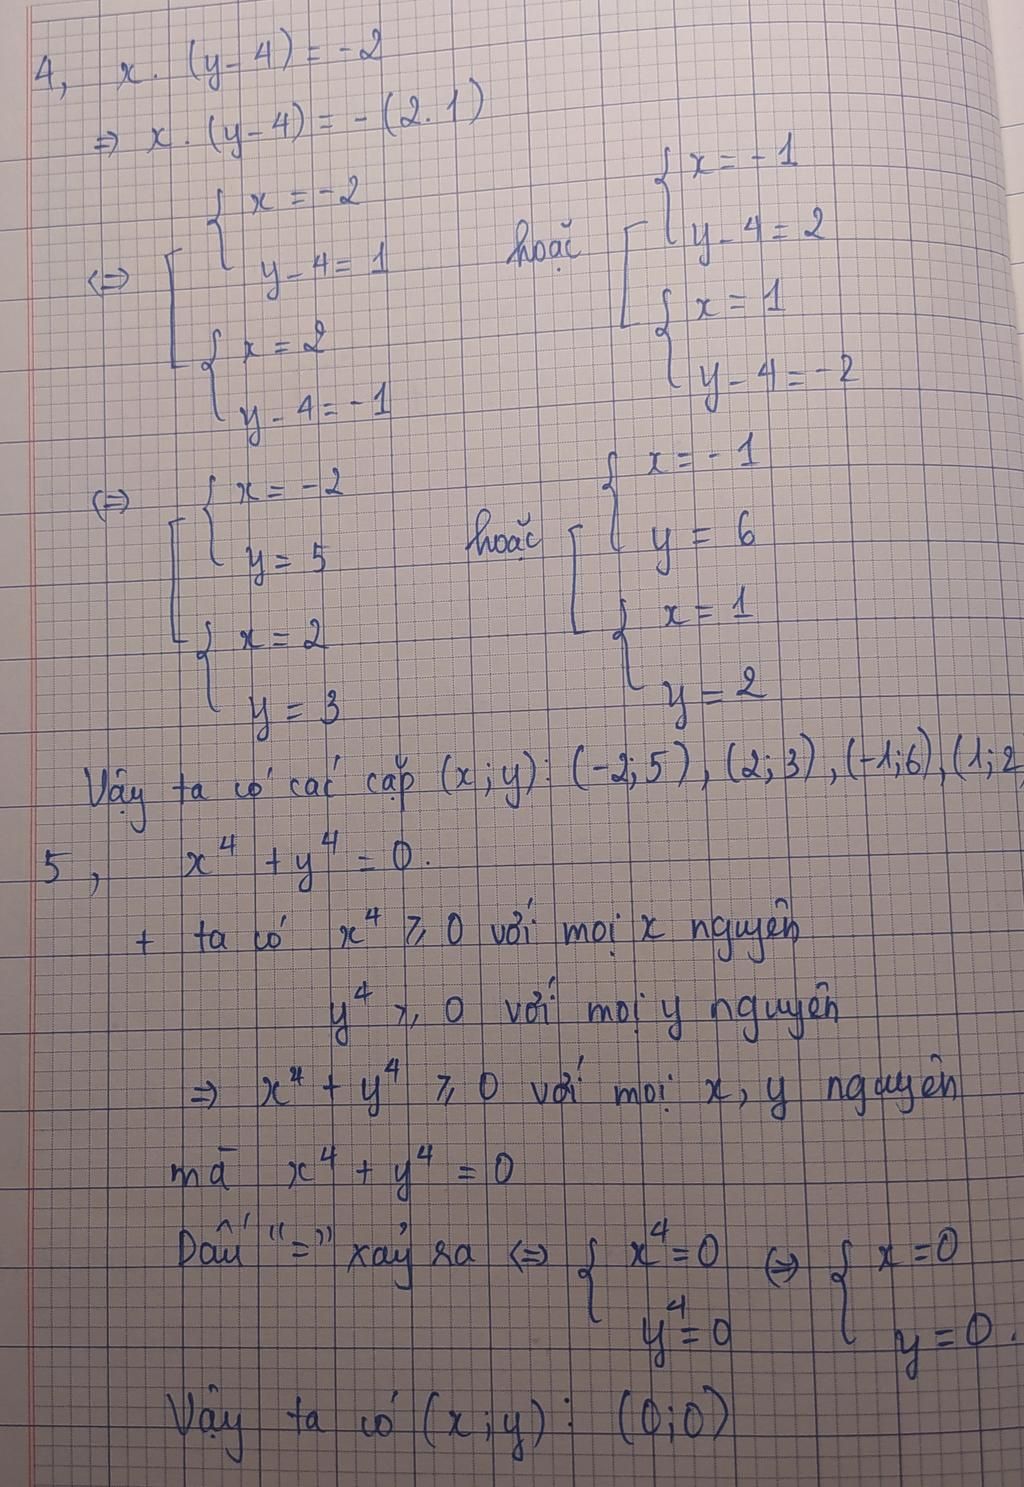 4, x. (y-4) = -2
=> x. (y-4) = -(2.1)
<=> [ { x = -2 y-4 = 1 { x = 2 y-4 = -1 hoặc [ { x = -1 y-4 = 2 { x = 1 y-4 = -2
<=> [ { x = -2 y = 5 { x = 2 y = 3 hoặc [ { x = -1 y = 6 { x = 1 y = 2
Vậy ta có các cặp (x;y): (-2;5), (2;3), (-1;6), (1;2
5, x⁴ + y⁴ = 0.
+ ta có x⁴ ⩾ 0 với mọi x nguyên
y⁴ ⩾ 0 với mọi y nguyên
=> x⁴ + y⁴ ⩾ 0 với mọi x, y nguyên
mà x⁴ + y⁴ = 0
Dấu "=" xảy ra <=> { x⁴ = 0 y⁴ = 0 <=> { x = 0 y = 0.
Vậy ta có (x;y): (0;0)